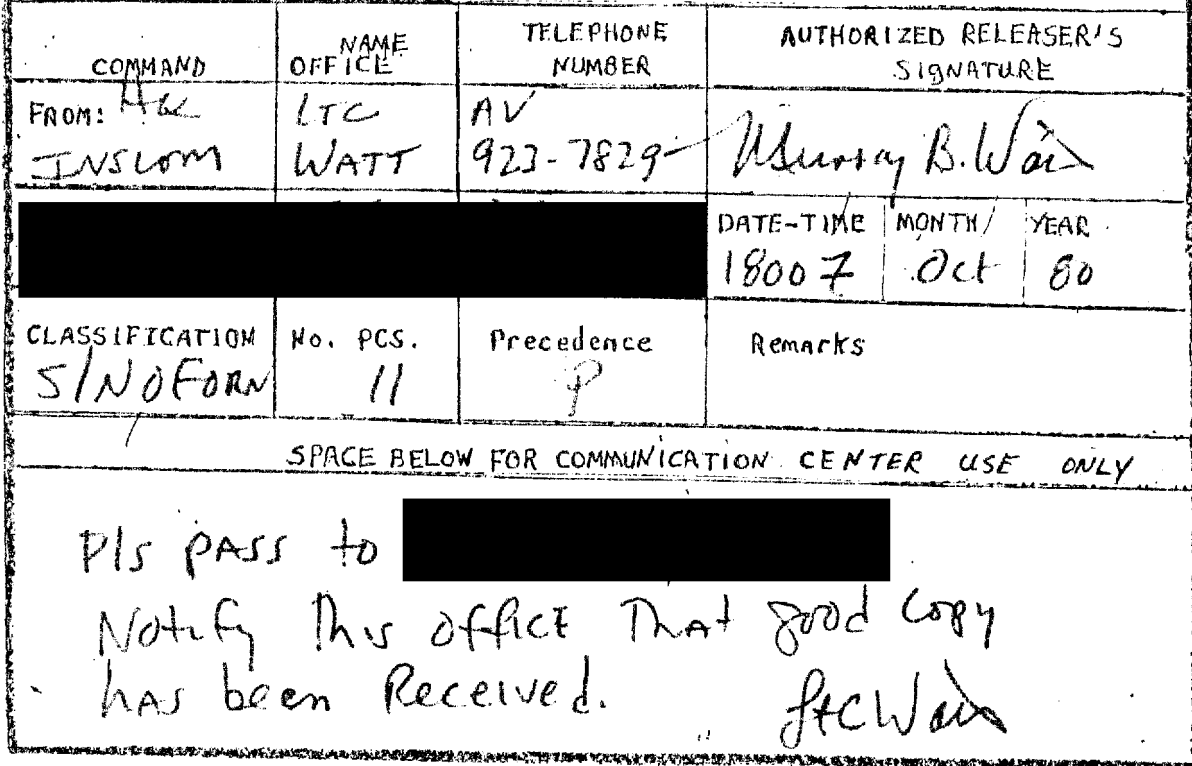 COMMAND
NAME
OFFICE
TELEPHONE
NUMBER
AUTHORIZED RELEASER'S
SIGNATURE
FROM:
INSCOM
LTC
WATT
AV
923-7829
Murray B. Watt
DATE-TIME
1800 Z
MONTH/
Oct
YEAR
80
CLASSIFICATION
S/NOFORN
No. PCS.
11
Precedence
P
Remarks
SPACE BELOW FOR COMMUNICATION CENTER USE ONLY
Pls PASS to
Notify This office That good Copy
hAs been Received.
LTC Watt